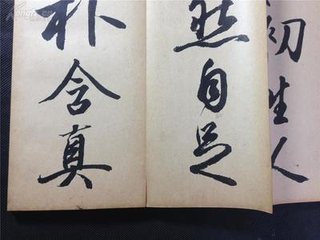 初生人
然自足
朴含真